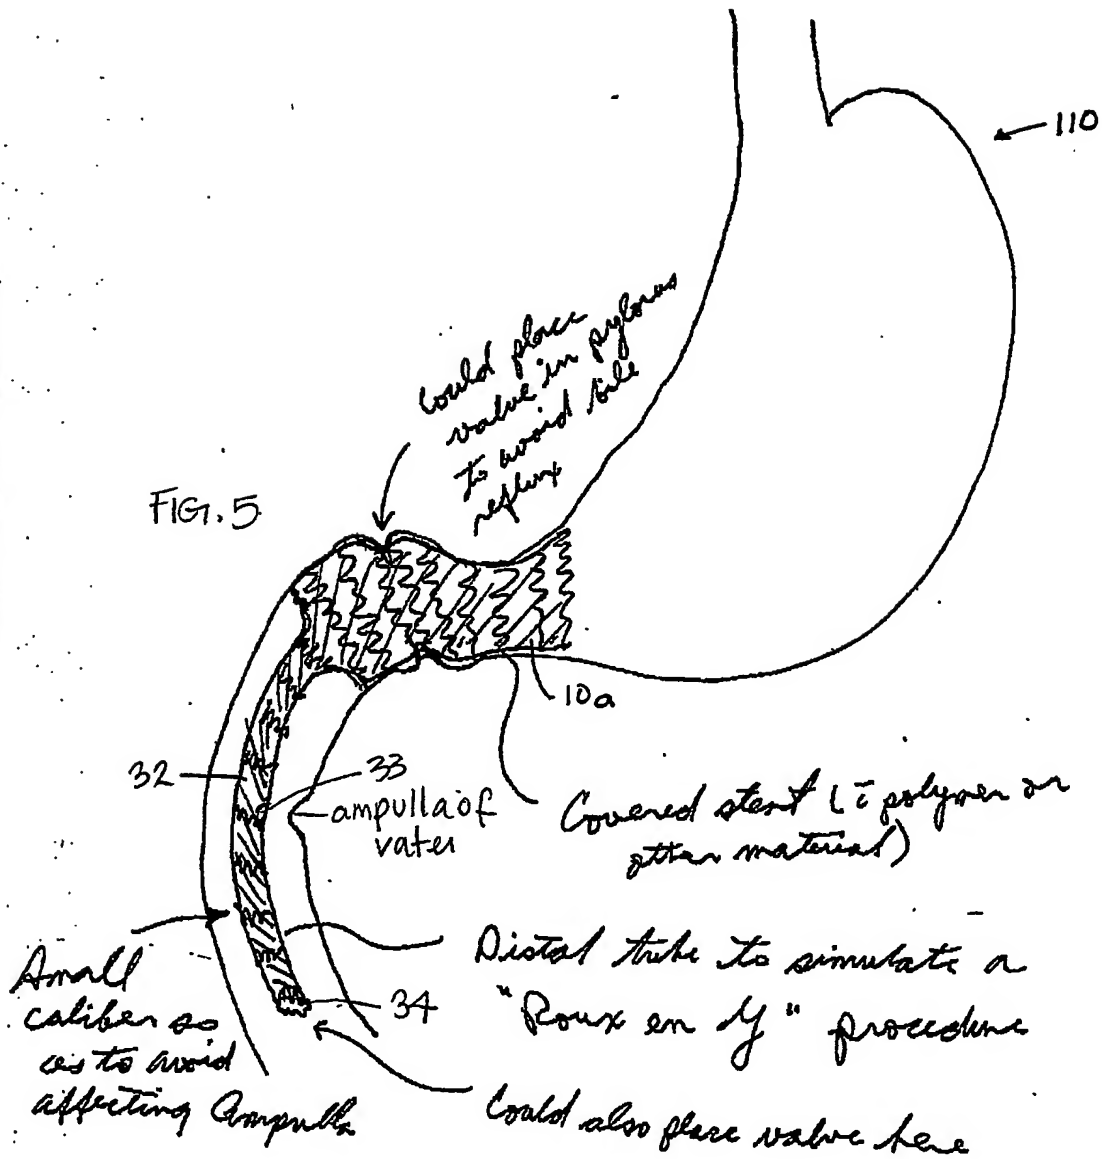 110
Could place
valve in pylorus
to avoid bile
reflux
FIG. 5
10a
32
33
ampulla of
vater
Covered stent (c̄ polymer or
other material)
Small
caliber so
as to avoid
affecting Ampulla
Distal tube to simulate a
"Roux en Y" procedure
34
Could also place valve here